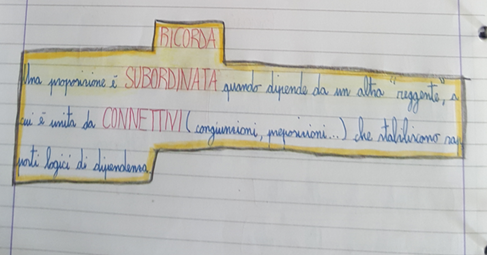 RICORDA
Una proposizione è SUBORDINATA quando dipende da un altra "reggente", a
cui è unita da CONNETTIVI (congiunzioni, preposizioni...) che stabiliscono rap
porti logici di dipendenza.